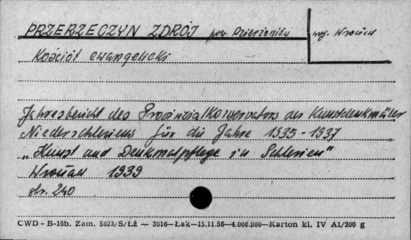 PRZERZECZYN ZDRÓJ pow. Dzierżoniów woj. Wrocław
Kościół ewangelicki
Jahresbericht des Provinzial Konservators der Kunstdenkmäler
Niederschlesiens für die Jahre 1935-1937
„Kunst und Denkmalpflege in Schlesien"
Wrocław 1939
str. 240
CWD - B-15b. Zam. 5823/S/Łż — 3916—Łak—15.11.56—4.000.000—Karton kl. IV A1/200 g